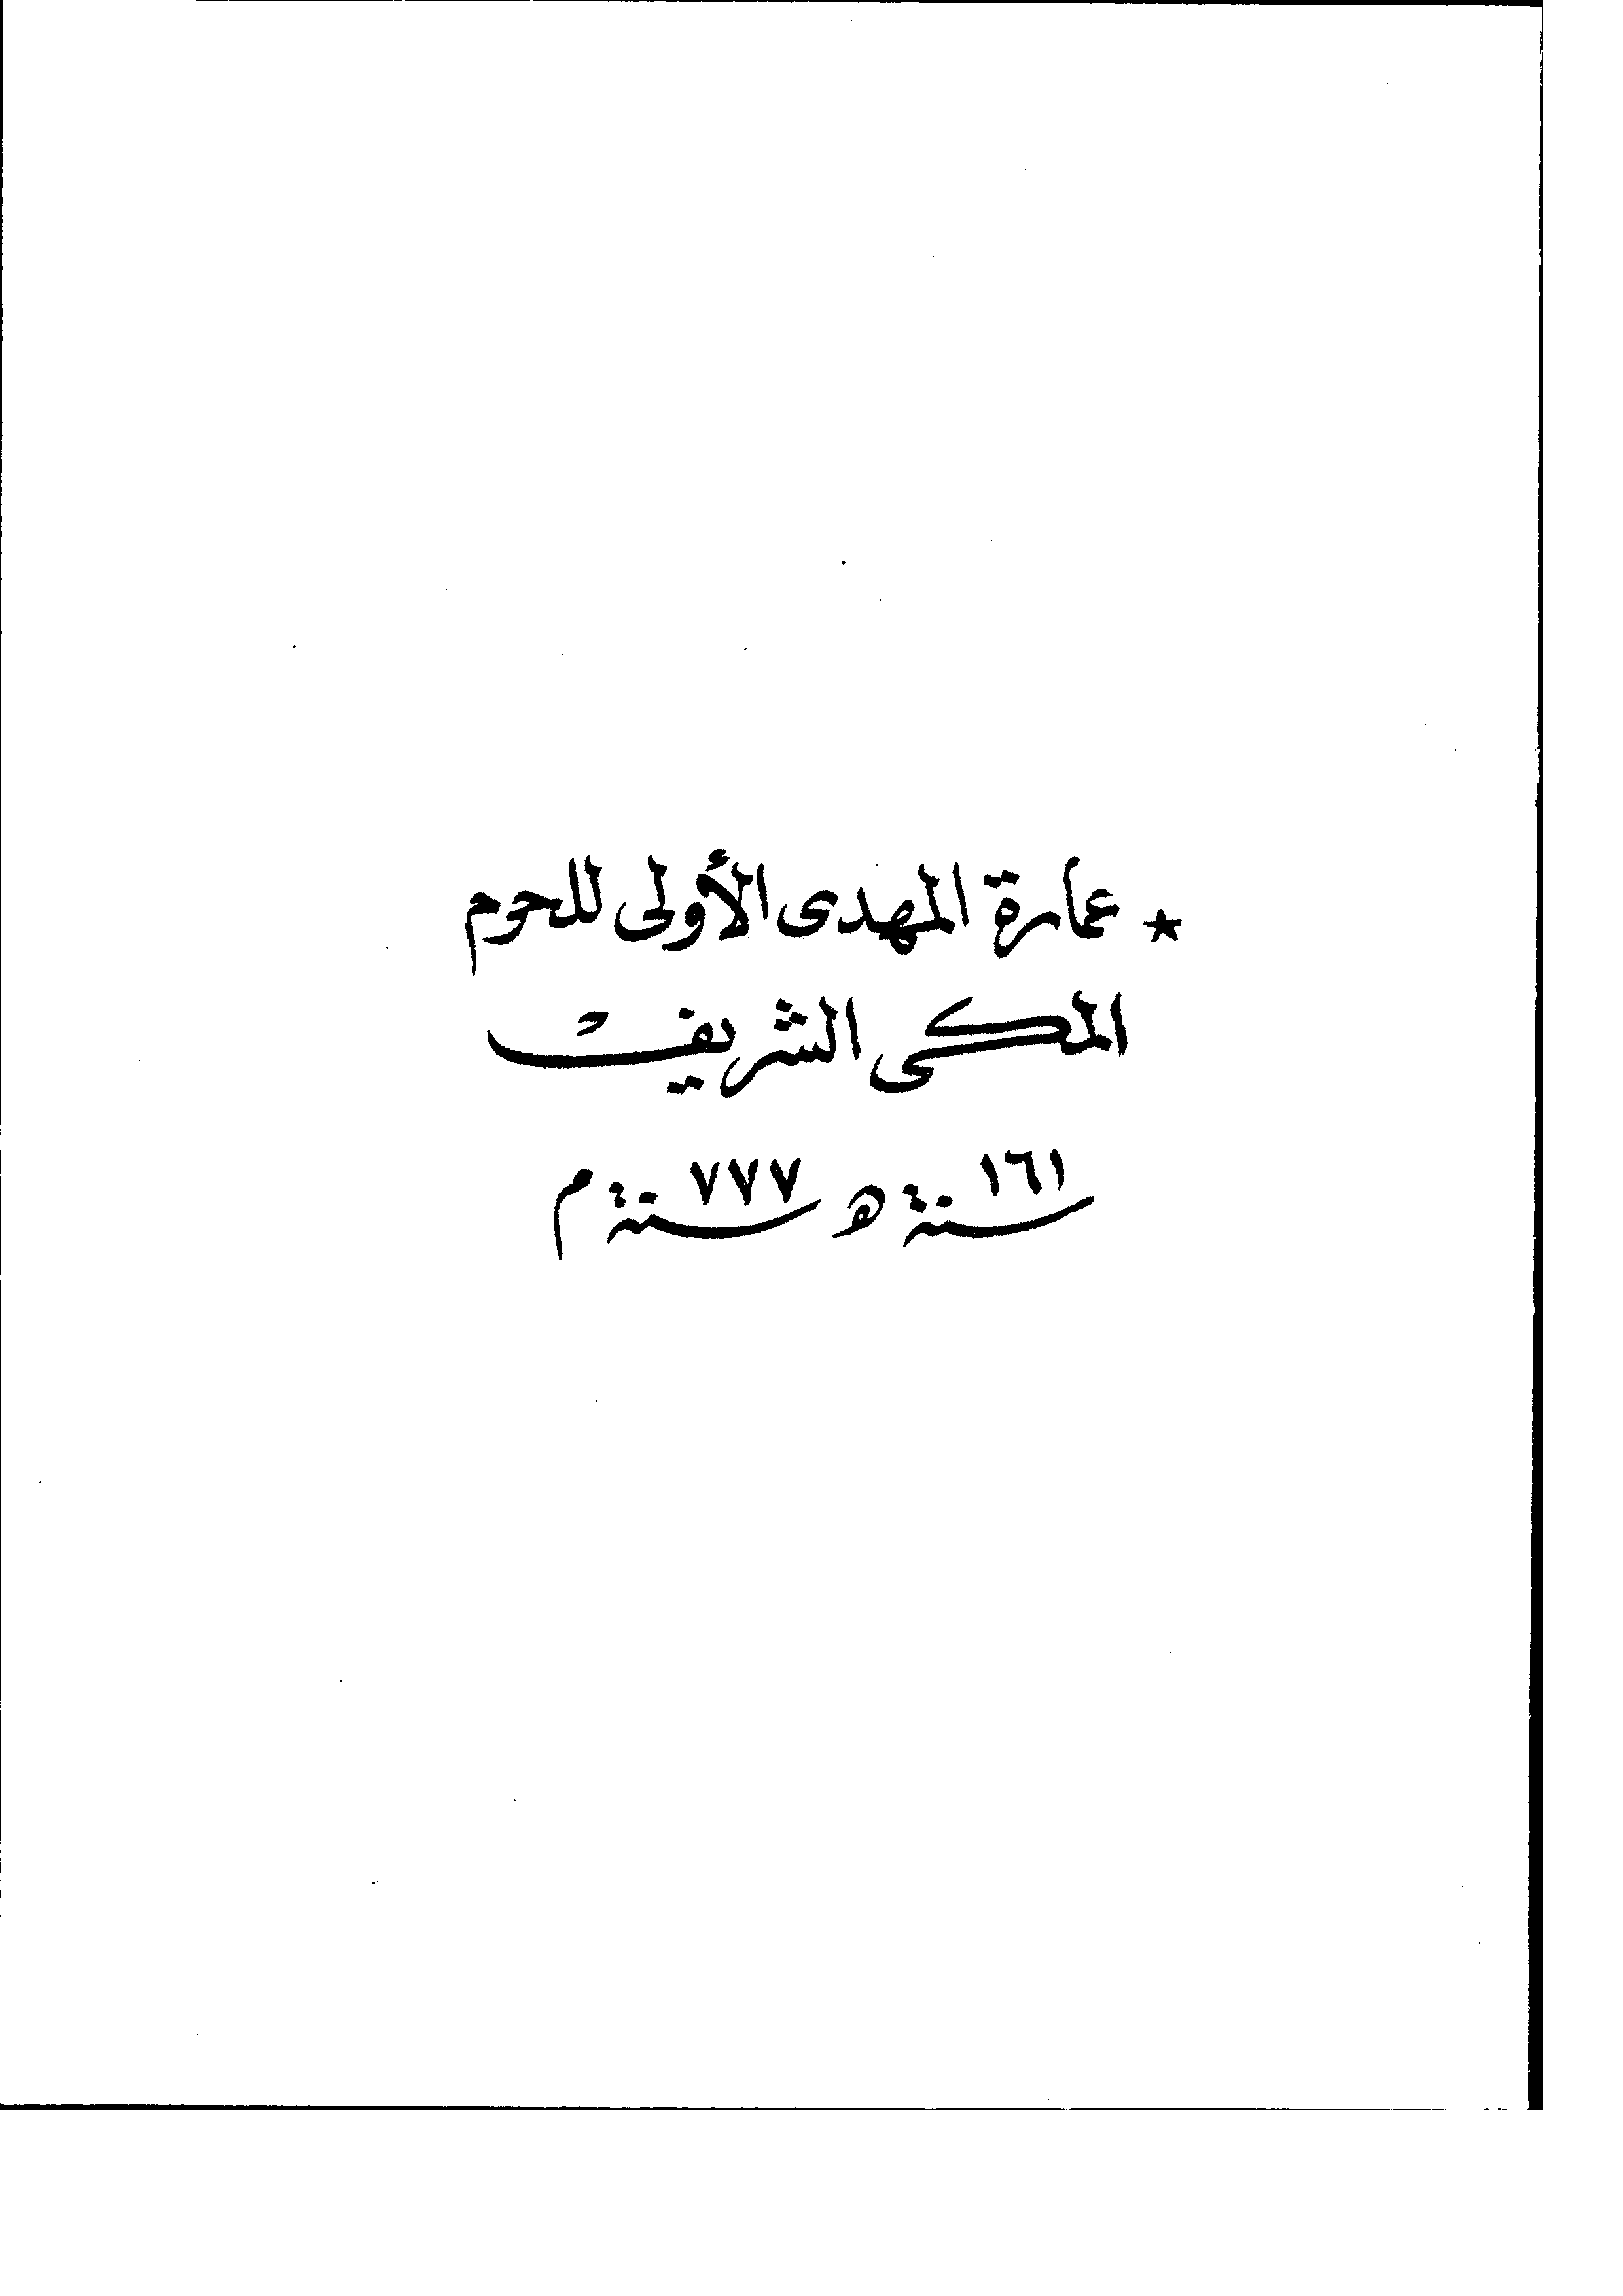 ★ عمارة المهدى الأولى للحرم
المكى الشريف
سنة ١٦١ هـ سنة ٧٧٧ م